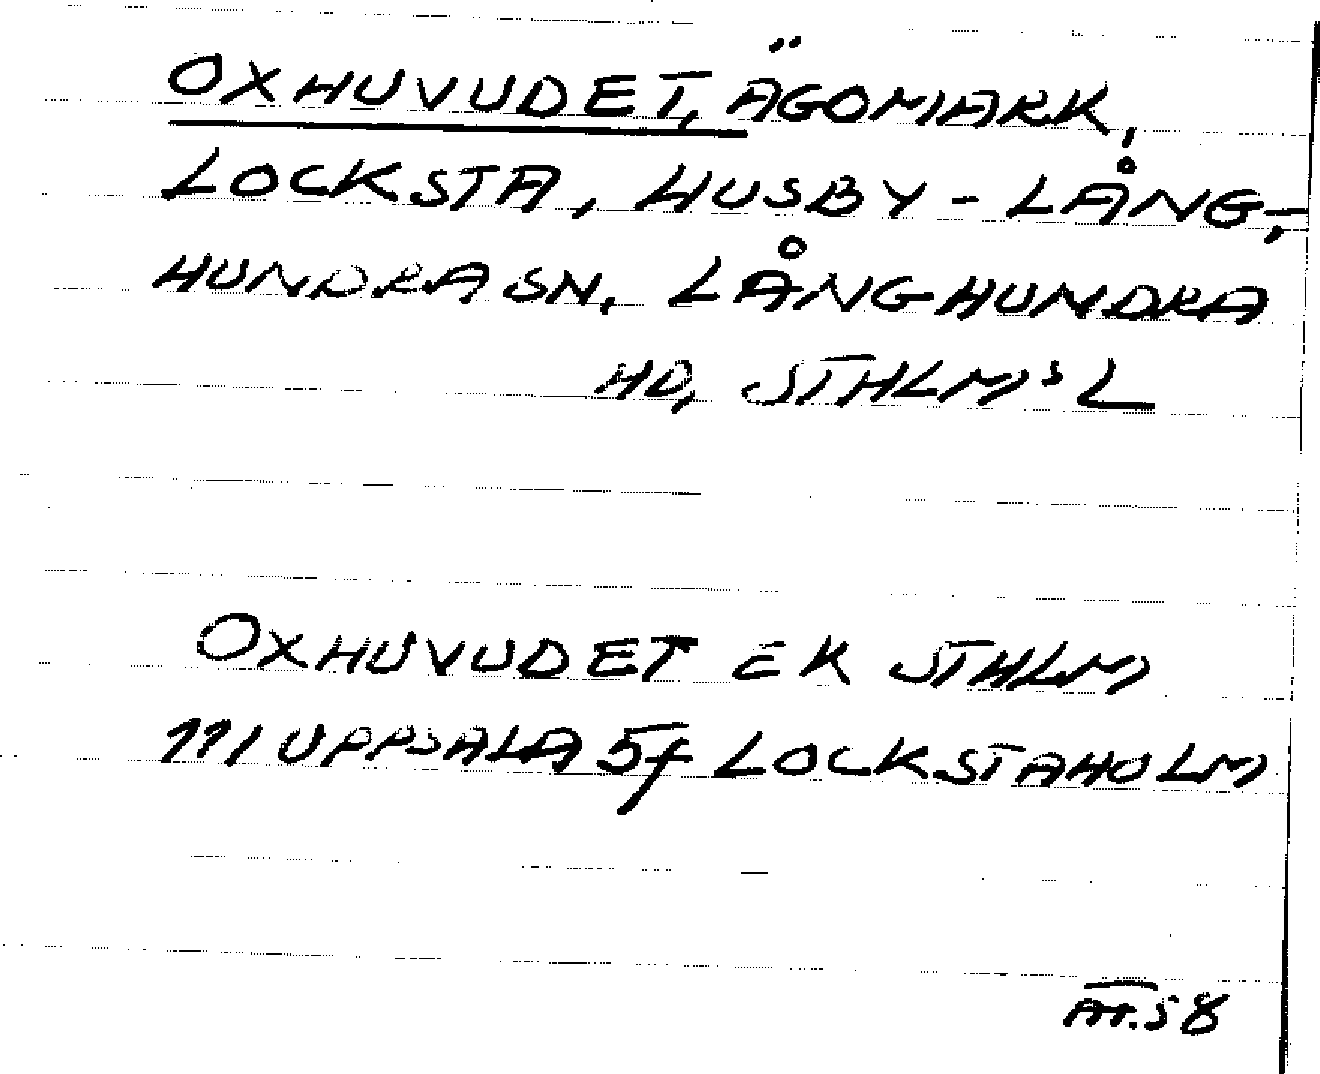 OXHUVUDET, ÄGOMARK,
LOCKSTA, HUSBY-LÅNG-
HUNDRA SN, LÅNGHUNDRA
HD, STHLMS L
OXHUVUDET EK STHLM
111 UPPSALA 5f LOCKSTAHOLM
58